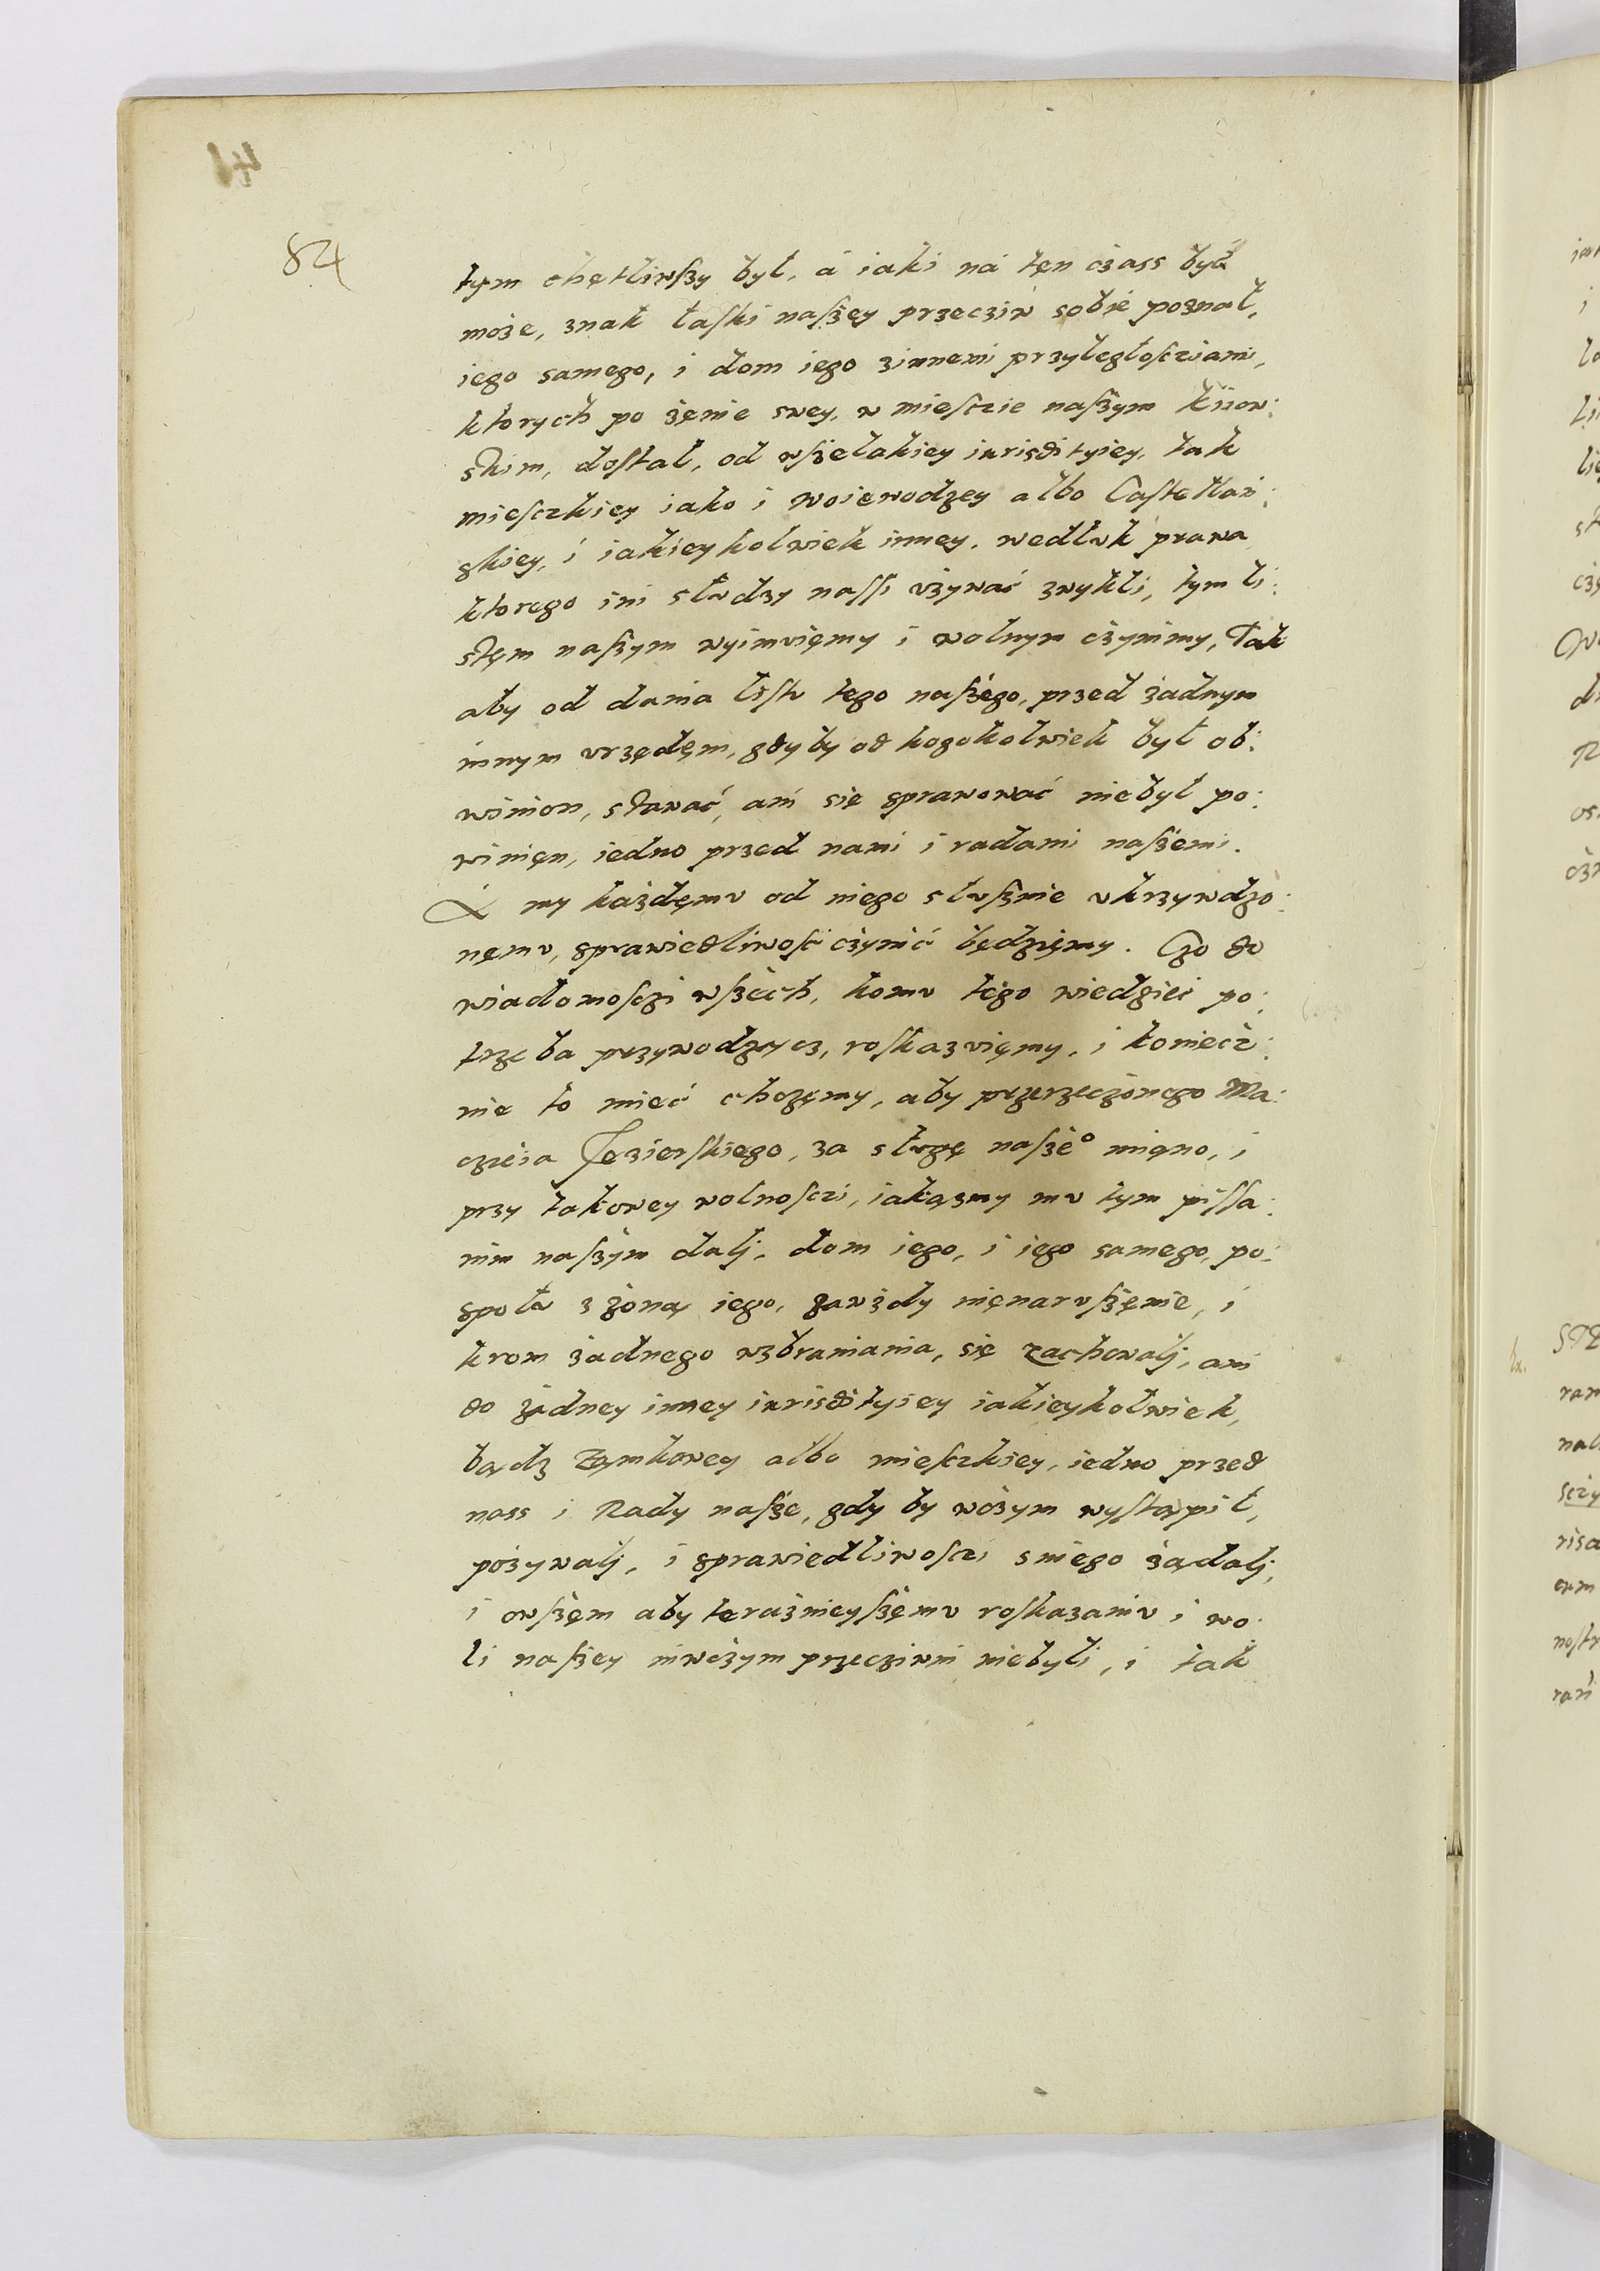 41
84
tym chętliwſzy był, á iaki ná tęn cżass być
może, znak łaſki naſzęy przeciw sobie poznał,
iego samego, i dom iego zinnemi przyległoſciami,
ktorych po żęnie swey, w mieſcie naſzym kiiow:
skim, doſtał, od wſzelakiey iurisdityiey, tak
mieſczkiey iako i woiewodzey albo Caſtellań:
skiey, i iakieykolwiek inney, wedluk prawa
ktorego ini słudzy naſſi vżywać zwykli, tym li:
stęm naſzym wyimvięmy i wolnym cżynimy, Tak
aby od dania liſtu tego naſzégo, przed żadnym
innym vrzędęm, gdy by od kogokolwiek był ob:
winion, stawać, ani się sprawować niebył po:
winięn, iedno przed nami i radami naſzemi.
A my każdęmv od niego slvſznie vkrzywdzo:
nęmv, sprawiedliwoſci cżynić będzięmy. Czo do
wiadomoſczi wſzech, komv tego wiedzieć po:
trzeba przywodzącz, roſkazvięmy, i koniecż:
nie to mieć chczęmy, aby przerzeczonego Ma:
czieia Jezierſkiego, za slvgę naſzeº miano, i
przy takowey wolnoſczi, iakąsmy mv tym piſſa:
nim naſzym dalj, dom iego, i iego samego, po:
społv z żoną iego, zawżdy nięnarvſzęnie, i
krom żadnego wzbraniania, się zachowalj, ani
do żadney inney iurisdityiey iakieykolwiek,
bądz zamkowey albo mieſczkiey, iedno przed
nass i Rady naſze, gdy by wcżym wyſtąpił,
pożywalj, i sprawiedliwoſczi sniego żądalj,
i owſzęm aby terażnieyſzęmv roſkazaniv i wo:
li naſzey niwcżym przecziwni niebyli, i tak